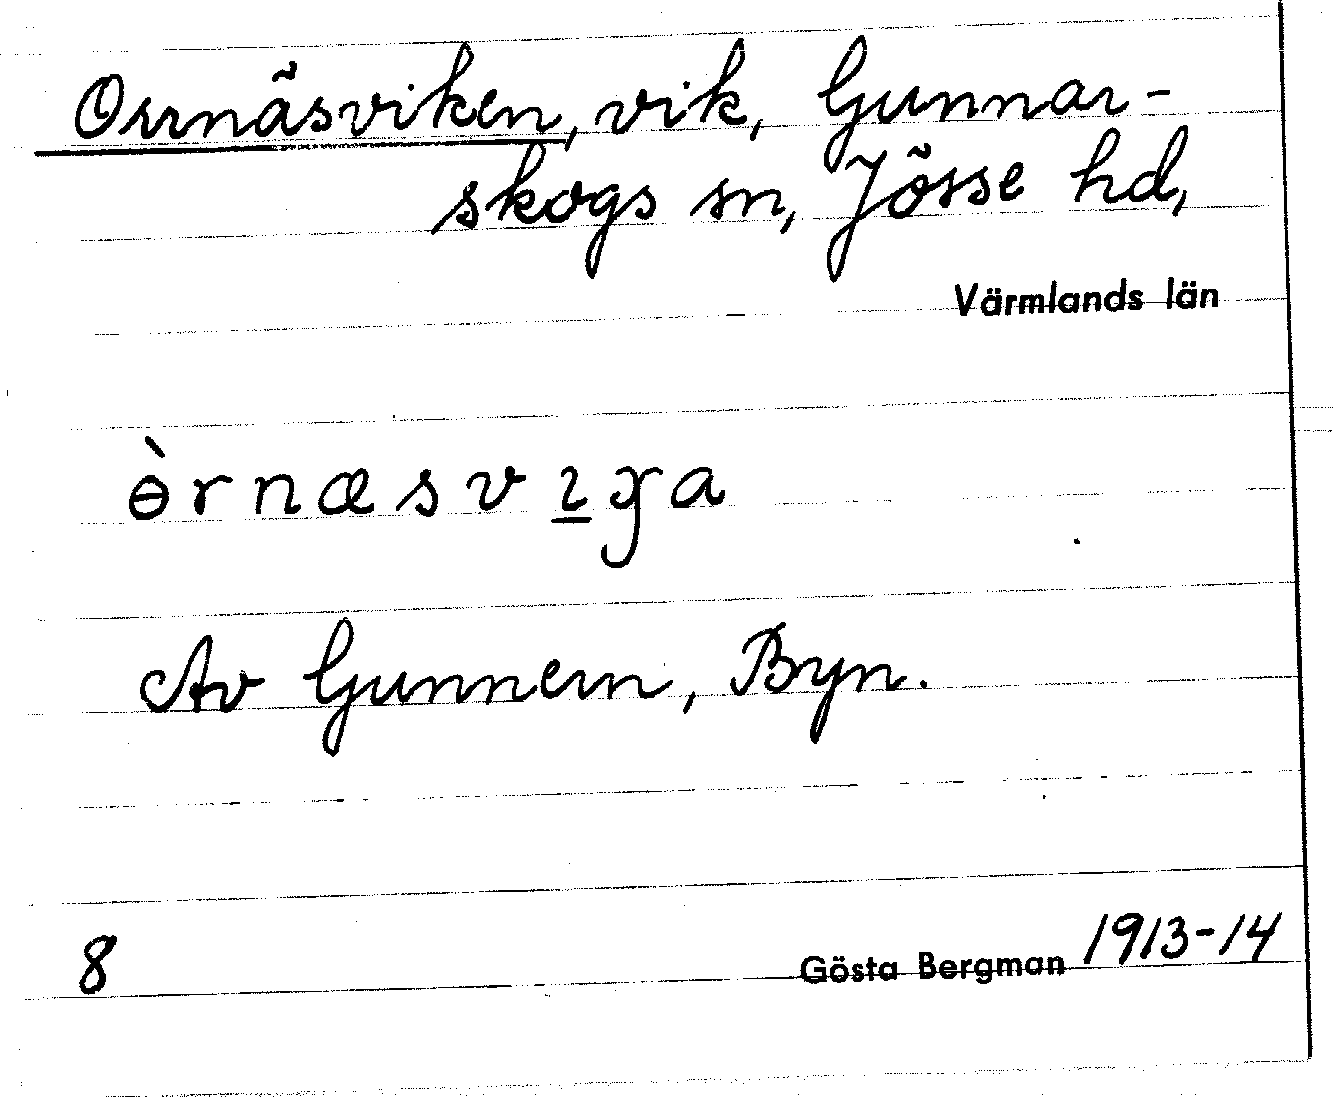 Orrnäsviken, vik, Gunnar-
skogs sn, Jösse hd,
Värmlands län
ɵ̀rnæsvıɡa
Av Gunnern, Byn.
8
Gösta Bergman 1913-14